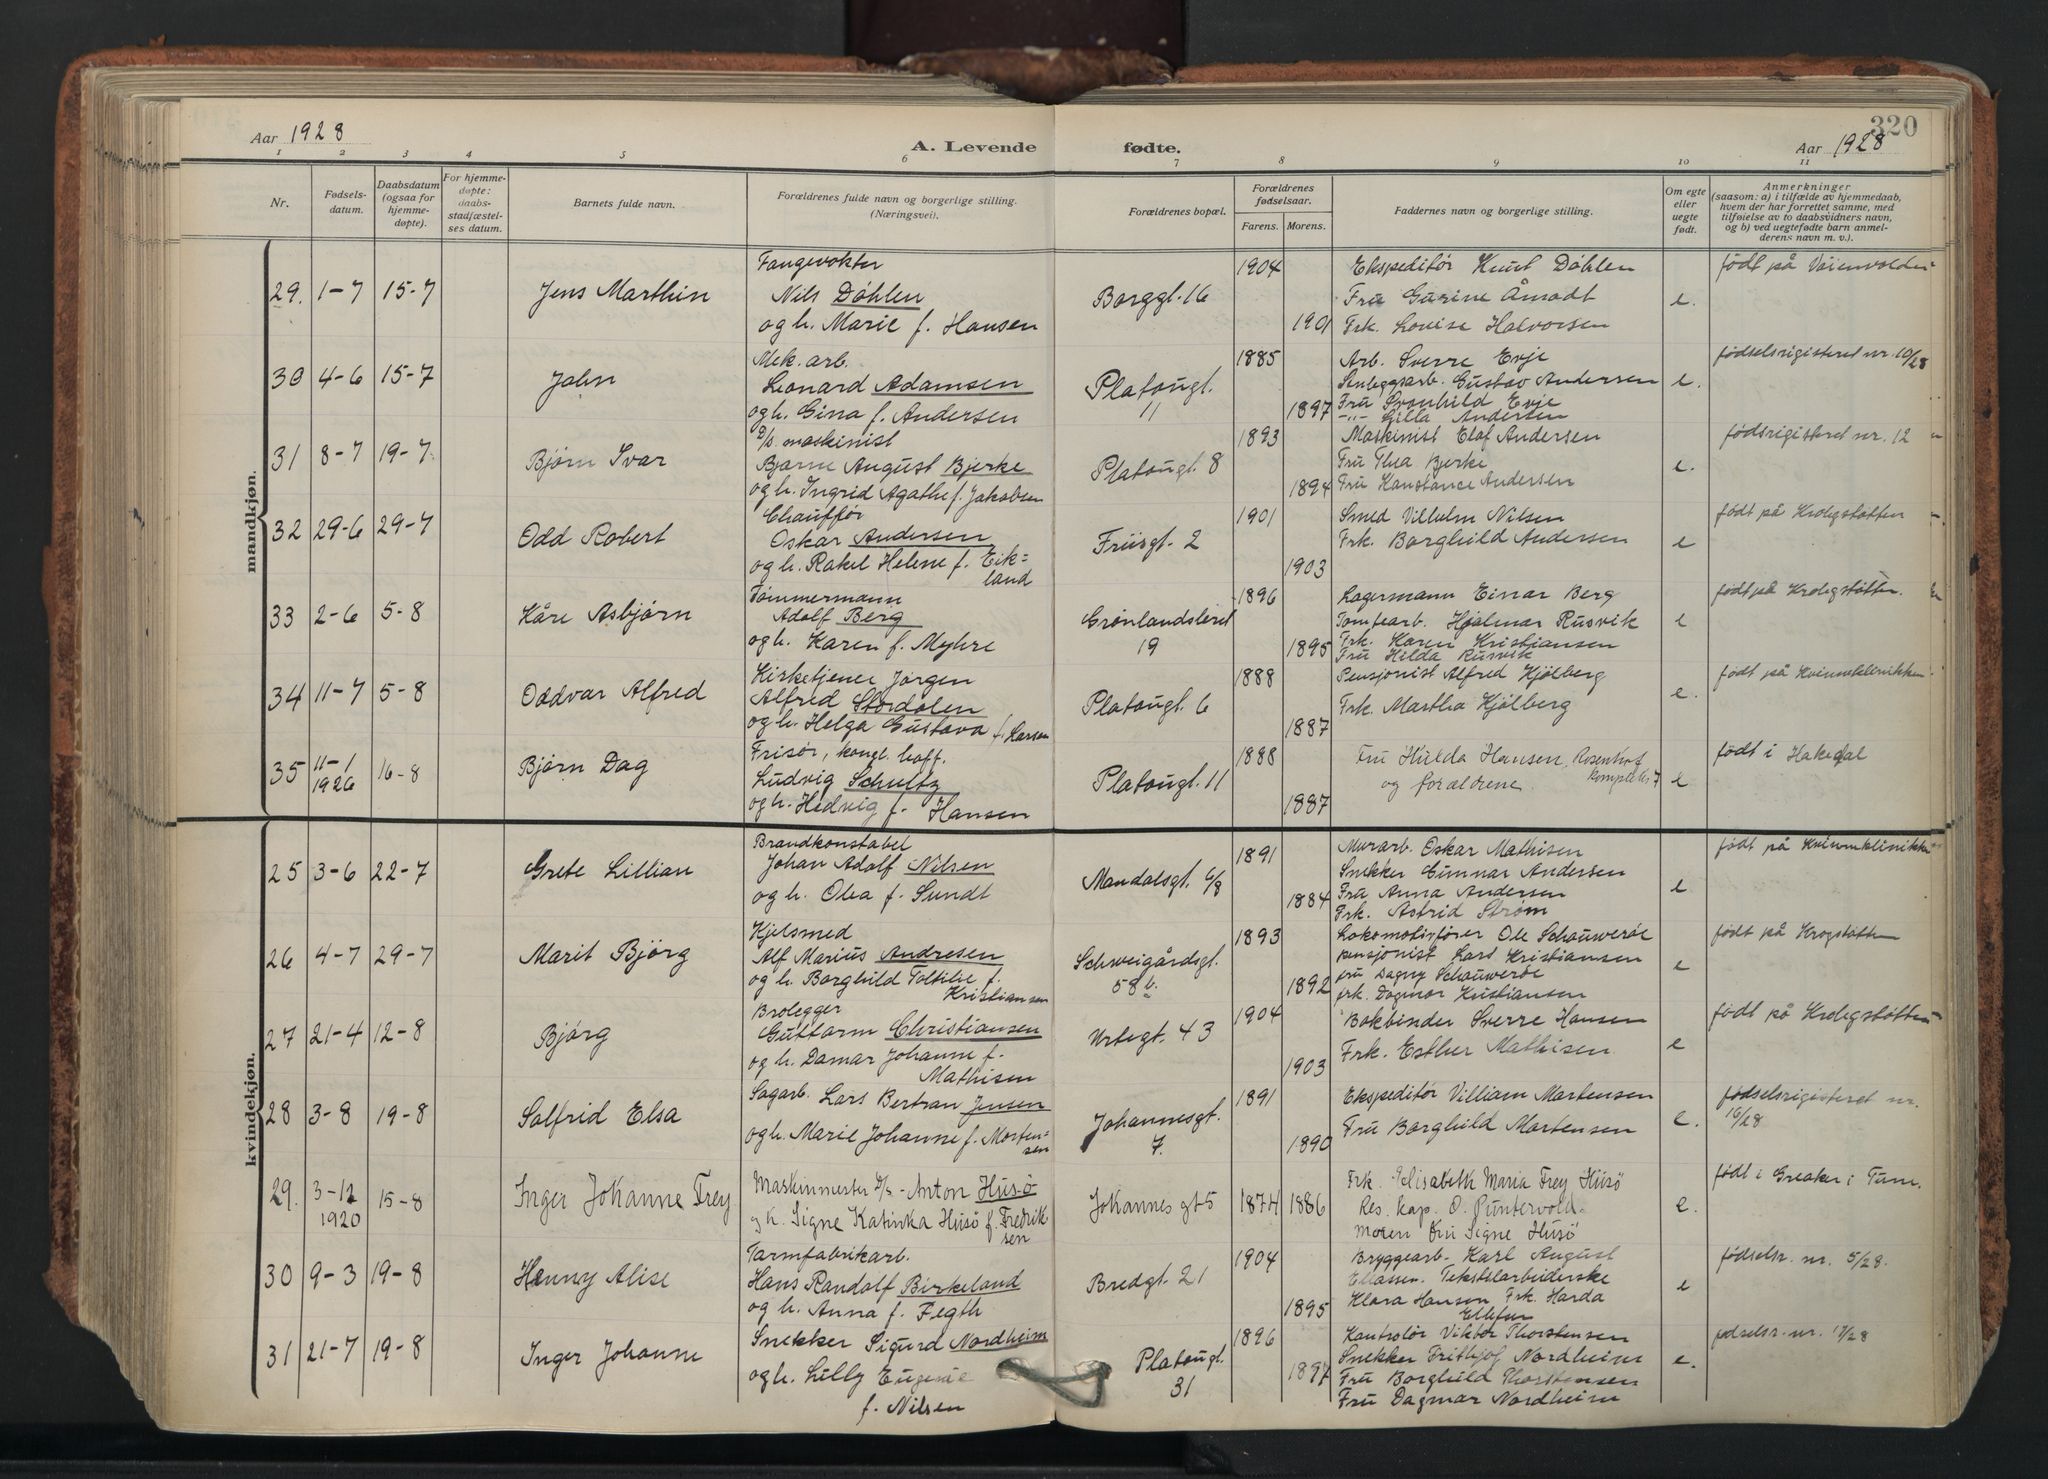 320
Aar 1928
A. Levende fødte.
Aar 1928
1 2 3 4 5 6 7 8 9 10 11
Nr.
Fødsels-
datum.
Daabsdatum
(ogsaa for
hjemme-
døpte).
For hjemme-
døpte:
daabs-
stadfæstel-
ses datum.
Barnets fulde navn.
Forældrenes fulde navn og borgerlige stilling.
(Næringsvei).
Forældrenes bopæl.
Forældrenes
fødselsaar.
Farens. Morens.
Faddernes navn og borgerlige stilling.
Om egte
eller
uegte
født.
Anmerkninger
(saasom: a) i tilfælde av hjemmedaab,
hvem der har forrettet samme, med
tilføielse av to daabsvidners navn,
og b) ved uegtefødte barn anmel-
derens navn m. v.).
mandkjøn.
29. 1-7 15-7 Jens Marthin
Fangevokter
Nils Döhlen
og h. Marie f. Hansen
Borggt. 16
1904
1901
Ekspeditör Knut Döhlen
Fru Gurine Åmodt
Frk. Lovise Halvorsen
e.
født på
30 4-6 15-7 John
Mek. arb.
Leonard Adamsen
og h. Gina f. Andersen
Platougt.
11
1885
1897
Arb. Sverre Evje
Gustav Andersen
Fru Svanhild Evje
-"- Gilla Andersen
e.
fødselsrigisteret nr. 10/28
31 8-7 19-7 Bjørn Ivar
D/s maskinist
Bjarne August Bjerke
og h. Ingrid Agathe f. Jakobsen
Platougt. 8
1893
1894
Maskinist Elof Andersen
Fru Thea Bjerke
Fru Konstance Andersen
e.
fødsrigisteret nr. 12
32 29-6 29-7 Odd Robert
Chauffør
Oskar Andersen
og h. Rakel Helene f. Eik=
land
Friisgt. 2
1901
1903
Smed Vilhelm Nilsen
Frk. Borghild Andersen
e
født på Krohgstøtten
33 2-6 5-8 Kåre Asbjørn
Tømmermann
Adolf Berg
og h. Karen f. Myhre
Grønlandsleret
19
1896
1895
Lagermann Einar Berg
Tomtearb. Hjalmar Rusvik
Frk. Karen Kristiansen
Fru Hilda Rusvik
e
født på Krohgstøtten.
34 11-7 5-8 Oddvar Alfred
Kirketjener Jørgen
Alfred Stordalen
og h. Helga Gustava f. Larsen
Platougt. 6
1888
1887
Pensjonist Alfred Hjölberg
Frk. Martha Hjölberg
e.
født på Kvinneklinikken
35 11-1
1926 16-8 Bjørn Dag
Frisør, kongl. hoff.
Ludvig Schultz
og h. Hedvig f. Hansen
Platougt. 11
1888
1887
Fru Hulda Hansen, Rosenhof
og forældrene.
e
født i Hakedal
kvindekjøn.
25 3-6 22-7 Grete Lillian
Brandkonstabel
Johan Adolf Nilsen
og h. Olea f. Sundt
Mandalsgt. 6/8
1891
1884
Murarb. Oskar Mathisen
Snekker Gunnar Andersen
Fru Anna Andersen
Frk. Astrid Strøm
e
født på Kvinneklinikken
26 4-7 29-7 Marit Bjørg
Hjelsmed
Alf Marius Andresen
og h. Borghild Toltilie f.
Kristiansen
Schweigårdsgt.
58 b.
1893
1892
Lokomotivfører Ole Schauwerøe
pensjonist Lars Kristiansen
fru Dagny Schauwerøe
frk. Dagmar Kristiansen
e
født på Krogstøtten
27 21-4 12-8 Bjørg
Brolegger
Guttorm Christiansen
og h. Damar Johanne f.
Mathisen
Urtegt. 43
1904
1903
Bokbinder Sverre Hansen
Frk. Esther Mathisen
e
født på Krohgstøtten
28 3-8 19-8 Solfrid Elsa
Sagarb. Lars Bertran Jensen
og h. Marie Johanne f. Morten=
sen
Johannesgt.
7.
1891
1890
Ekspeditör Villiam Martensen
Fru Borghild Mortensen
e.
fødselsrigisteret nr.
16/28
29. 3-12
1920 15-8 Inger Johanne Frey
Maskinmester D/s - Anton Husö
og h. Signe Katinka Husö f. Fredrik
sen
Johannes gt 5
1874 1886
Frk. Elisabeth Maria Frey Husö
Res. kap. O. Puntervold.
Moren fru Signe Husö
e.
født i Greaker i Tune.
30 9-3 19-8 Henny Alise
Tarmfabrikarb.
Hans Randolf Birkeland
og h. Anna f. Fegth
Bredgt. 21
1904
1895
Bryggearb. Karl August
Eliassen. Tekstilarbeiderske
Klara Hansen Frk. Harda
e
fødselsr. nr. 5/28.
31 21-7 19-8 Inger Johanne
Snekker Sigurd Nordheim
og h. Lilly Eugenie
f. Nilsen
Platougt.
31
1896
1897
Kontrolør Viktor Thorstensen
Snekker Frithjof Nordheim
Fru Borghild Thorstensen
Fru Dagmar Nordheim
e.
fødselsr. nr. 17/28